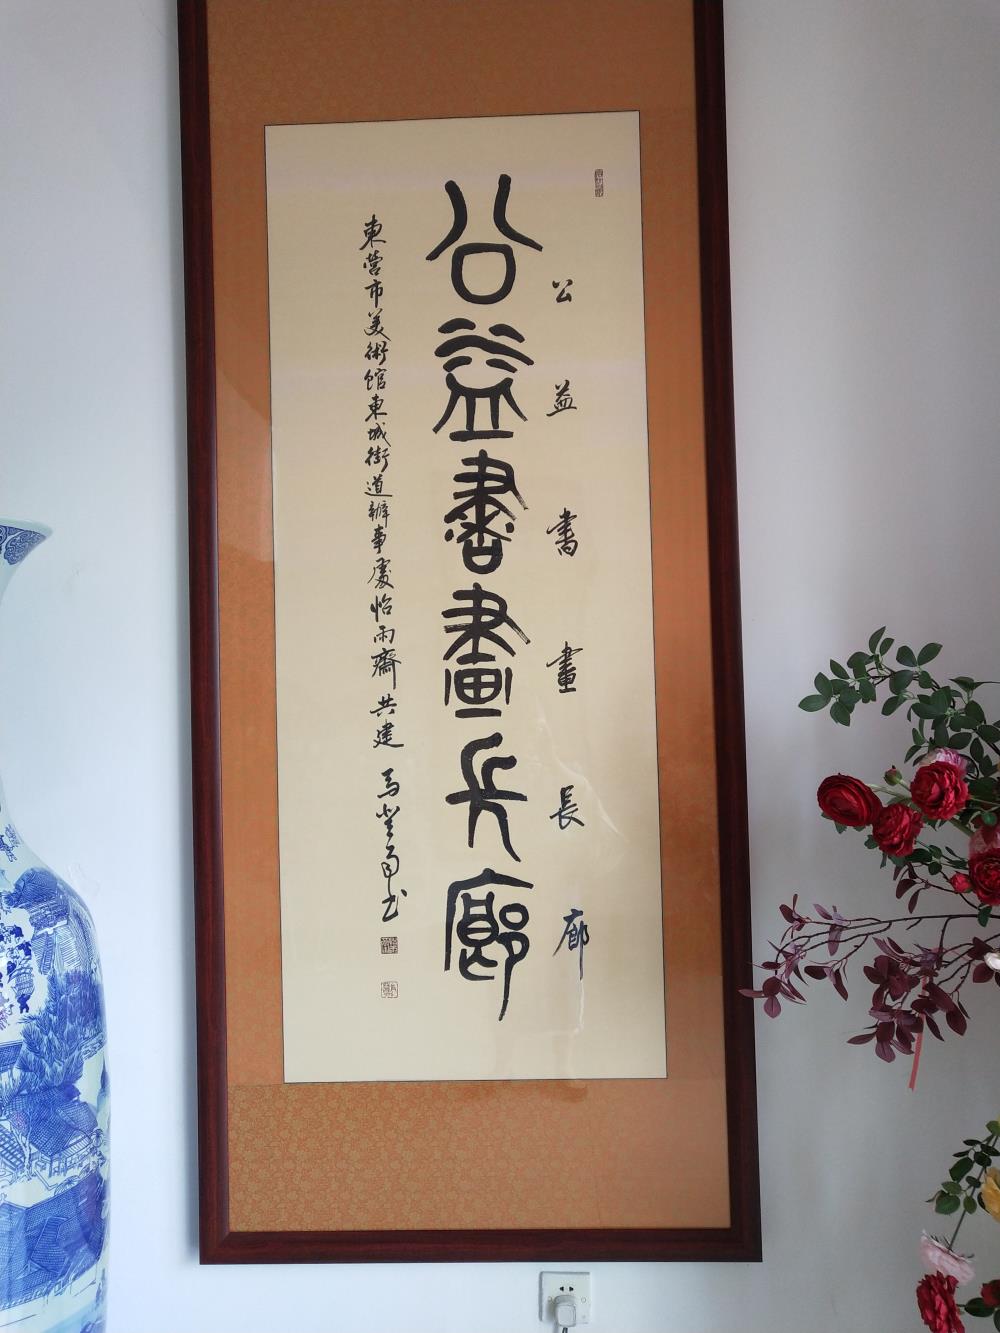 公益書畫長廊
公益書畫長廊
東營市美術館東城街道辦事處怡雨齋共建